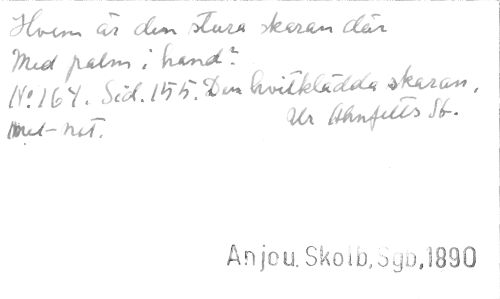 Hvem är den stora skaran där
Med palm i hand?
No 164. Sid. 155. Den hvitklädda skaran.
Ur Ahnfelts Sb.
Mel-not.
Anjou. Skolb, Sgb, 1890